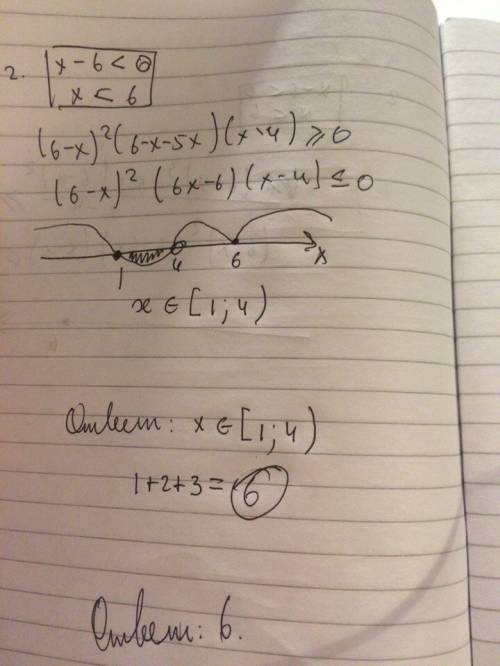 2. x - 6 < 0
x < 6
(6-x)²(6-x-5x)(x-4) ≥ 0
(6-x)² (6x-6) (x-4) ≤ 0
1 4 6 x
x ∈ [1; 4)
Ответ: x ∈ [1; 4)
1+2+3 = 6
Ответ: 6.